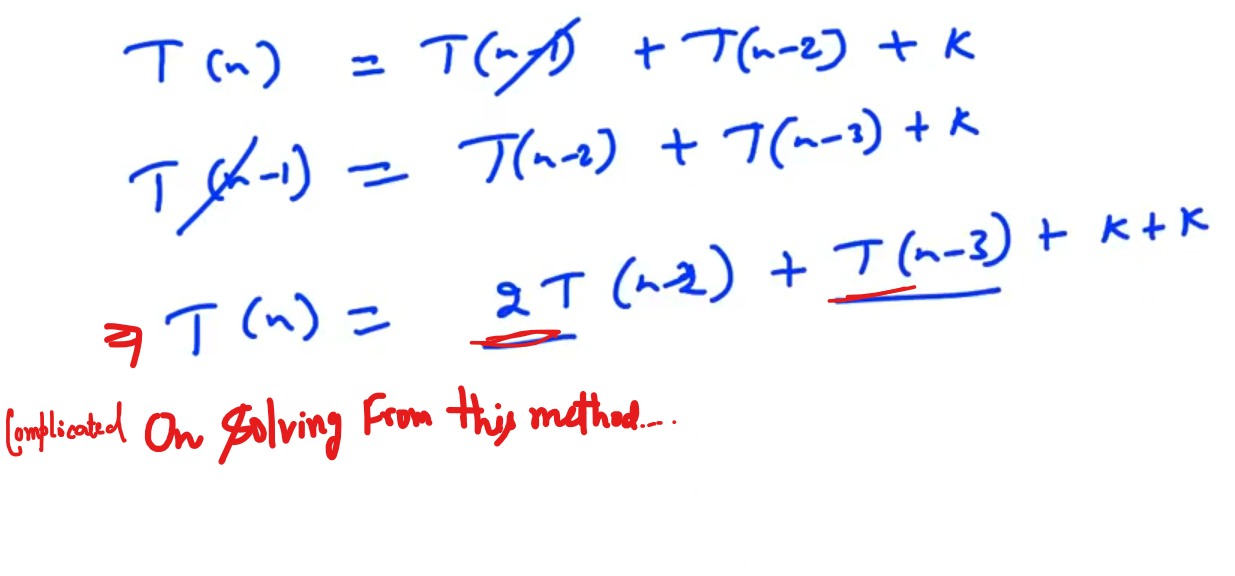 T(n) = T(n-1) + T(n-2) + K
T(n-1) = T(n-2) + T(n-3) + K
⇒ T(n) = 2T(n-2) + T(n-3) + K+K
Complicated On Solving From this method....